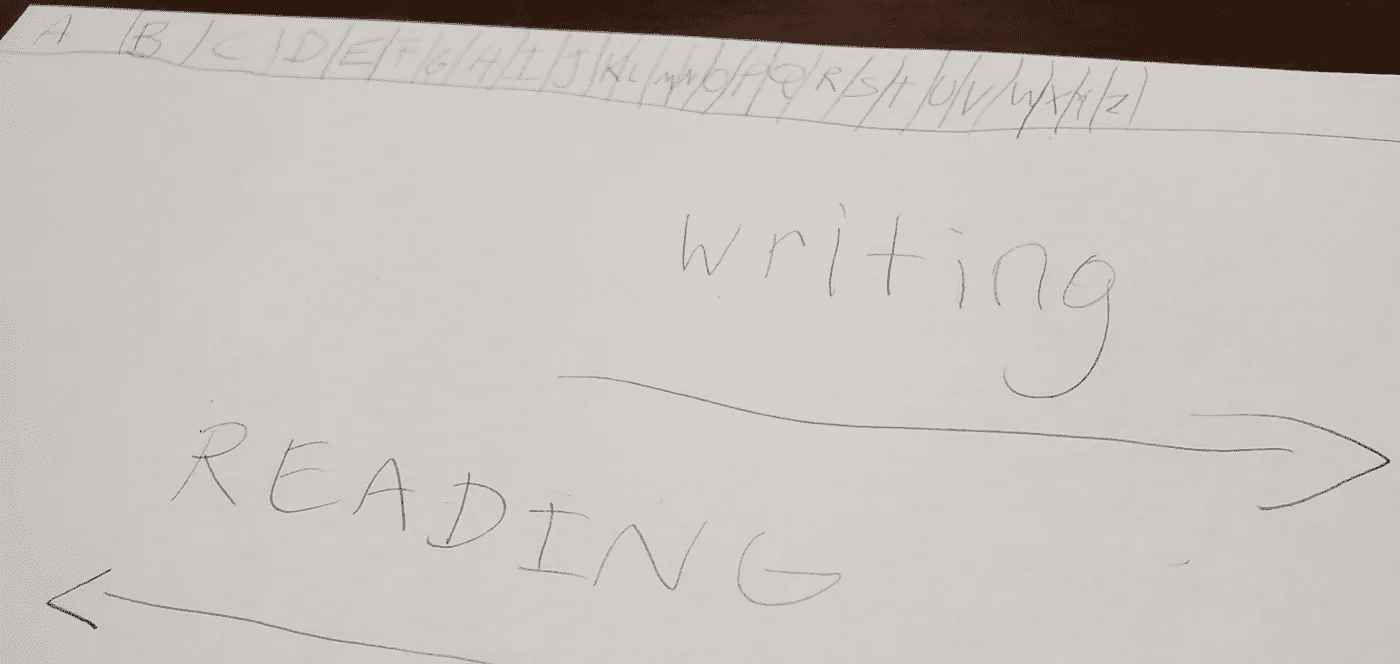 A B C D E F G H I J K L M N O P Q R S t U V W X Y Z
writing
READING